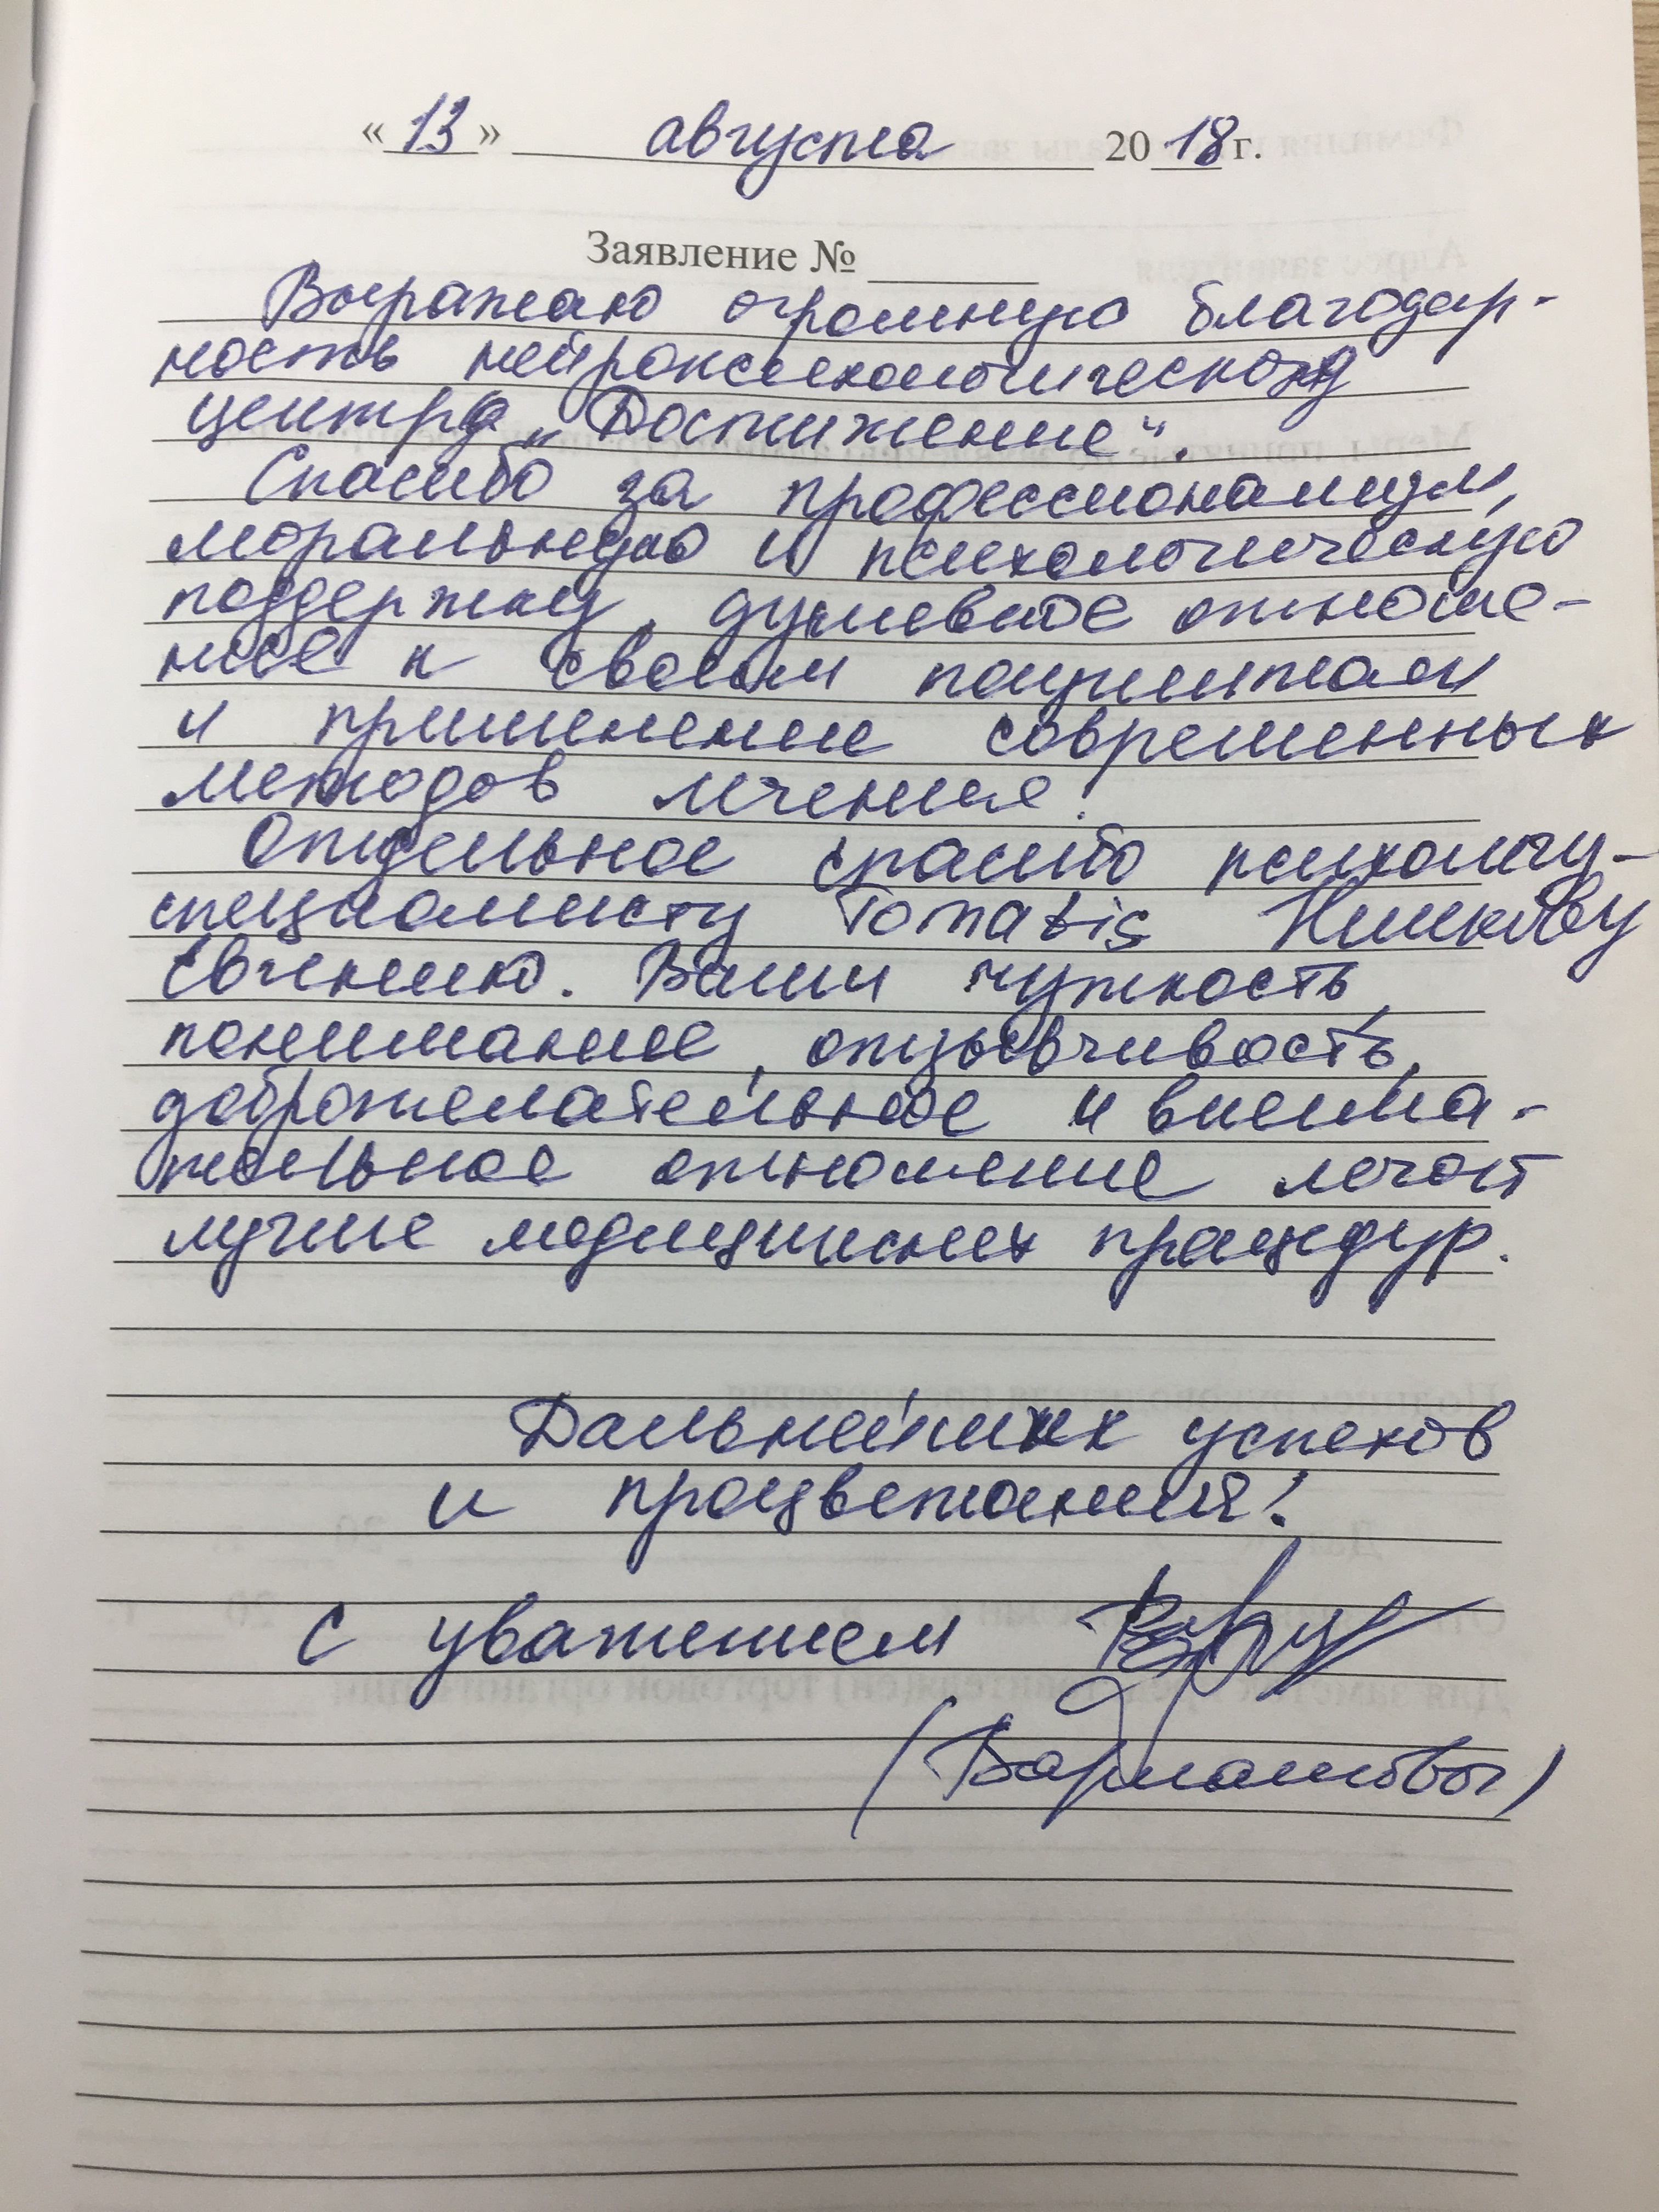 « 13 » августа 20 18 г.
Заявление №
Выражаю огромную благодар-
ность нейропсихологическому
центру „Достижение“.
Спасибо за профессионализм,
моральную и психологическую
поддержку, душевное отноше-
ние к своим пациентам
и применение современных
методов лечения!
Отдельное спасибо психологу-
специалисту Tomatis
Евгению. Ваши чуткость,
понимание, отзывчивость,
доброжелательное и внима-
тельное отношение лечат
лучше медицинских процедур.
Дальнейших успехов
и процветания!
С уважением